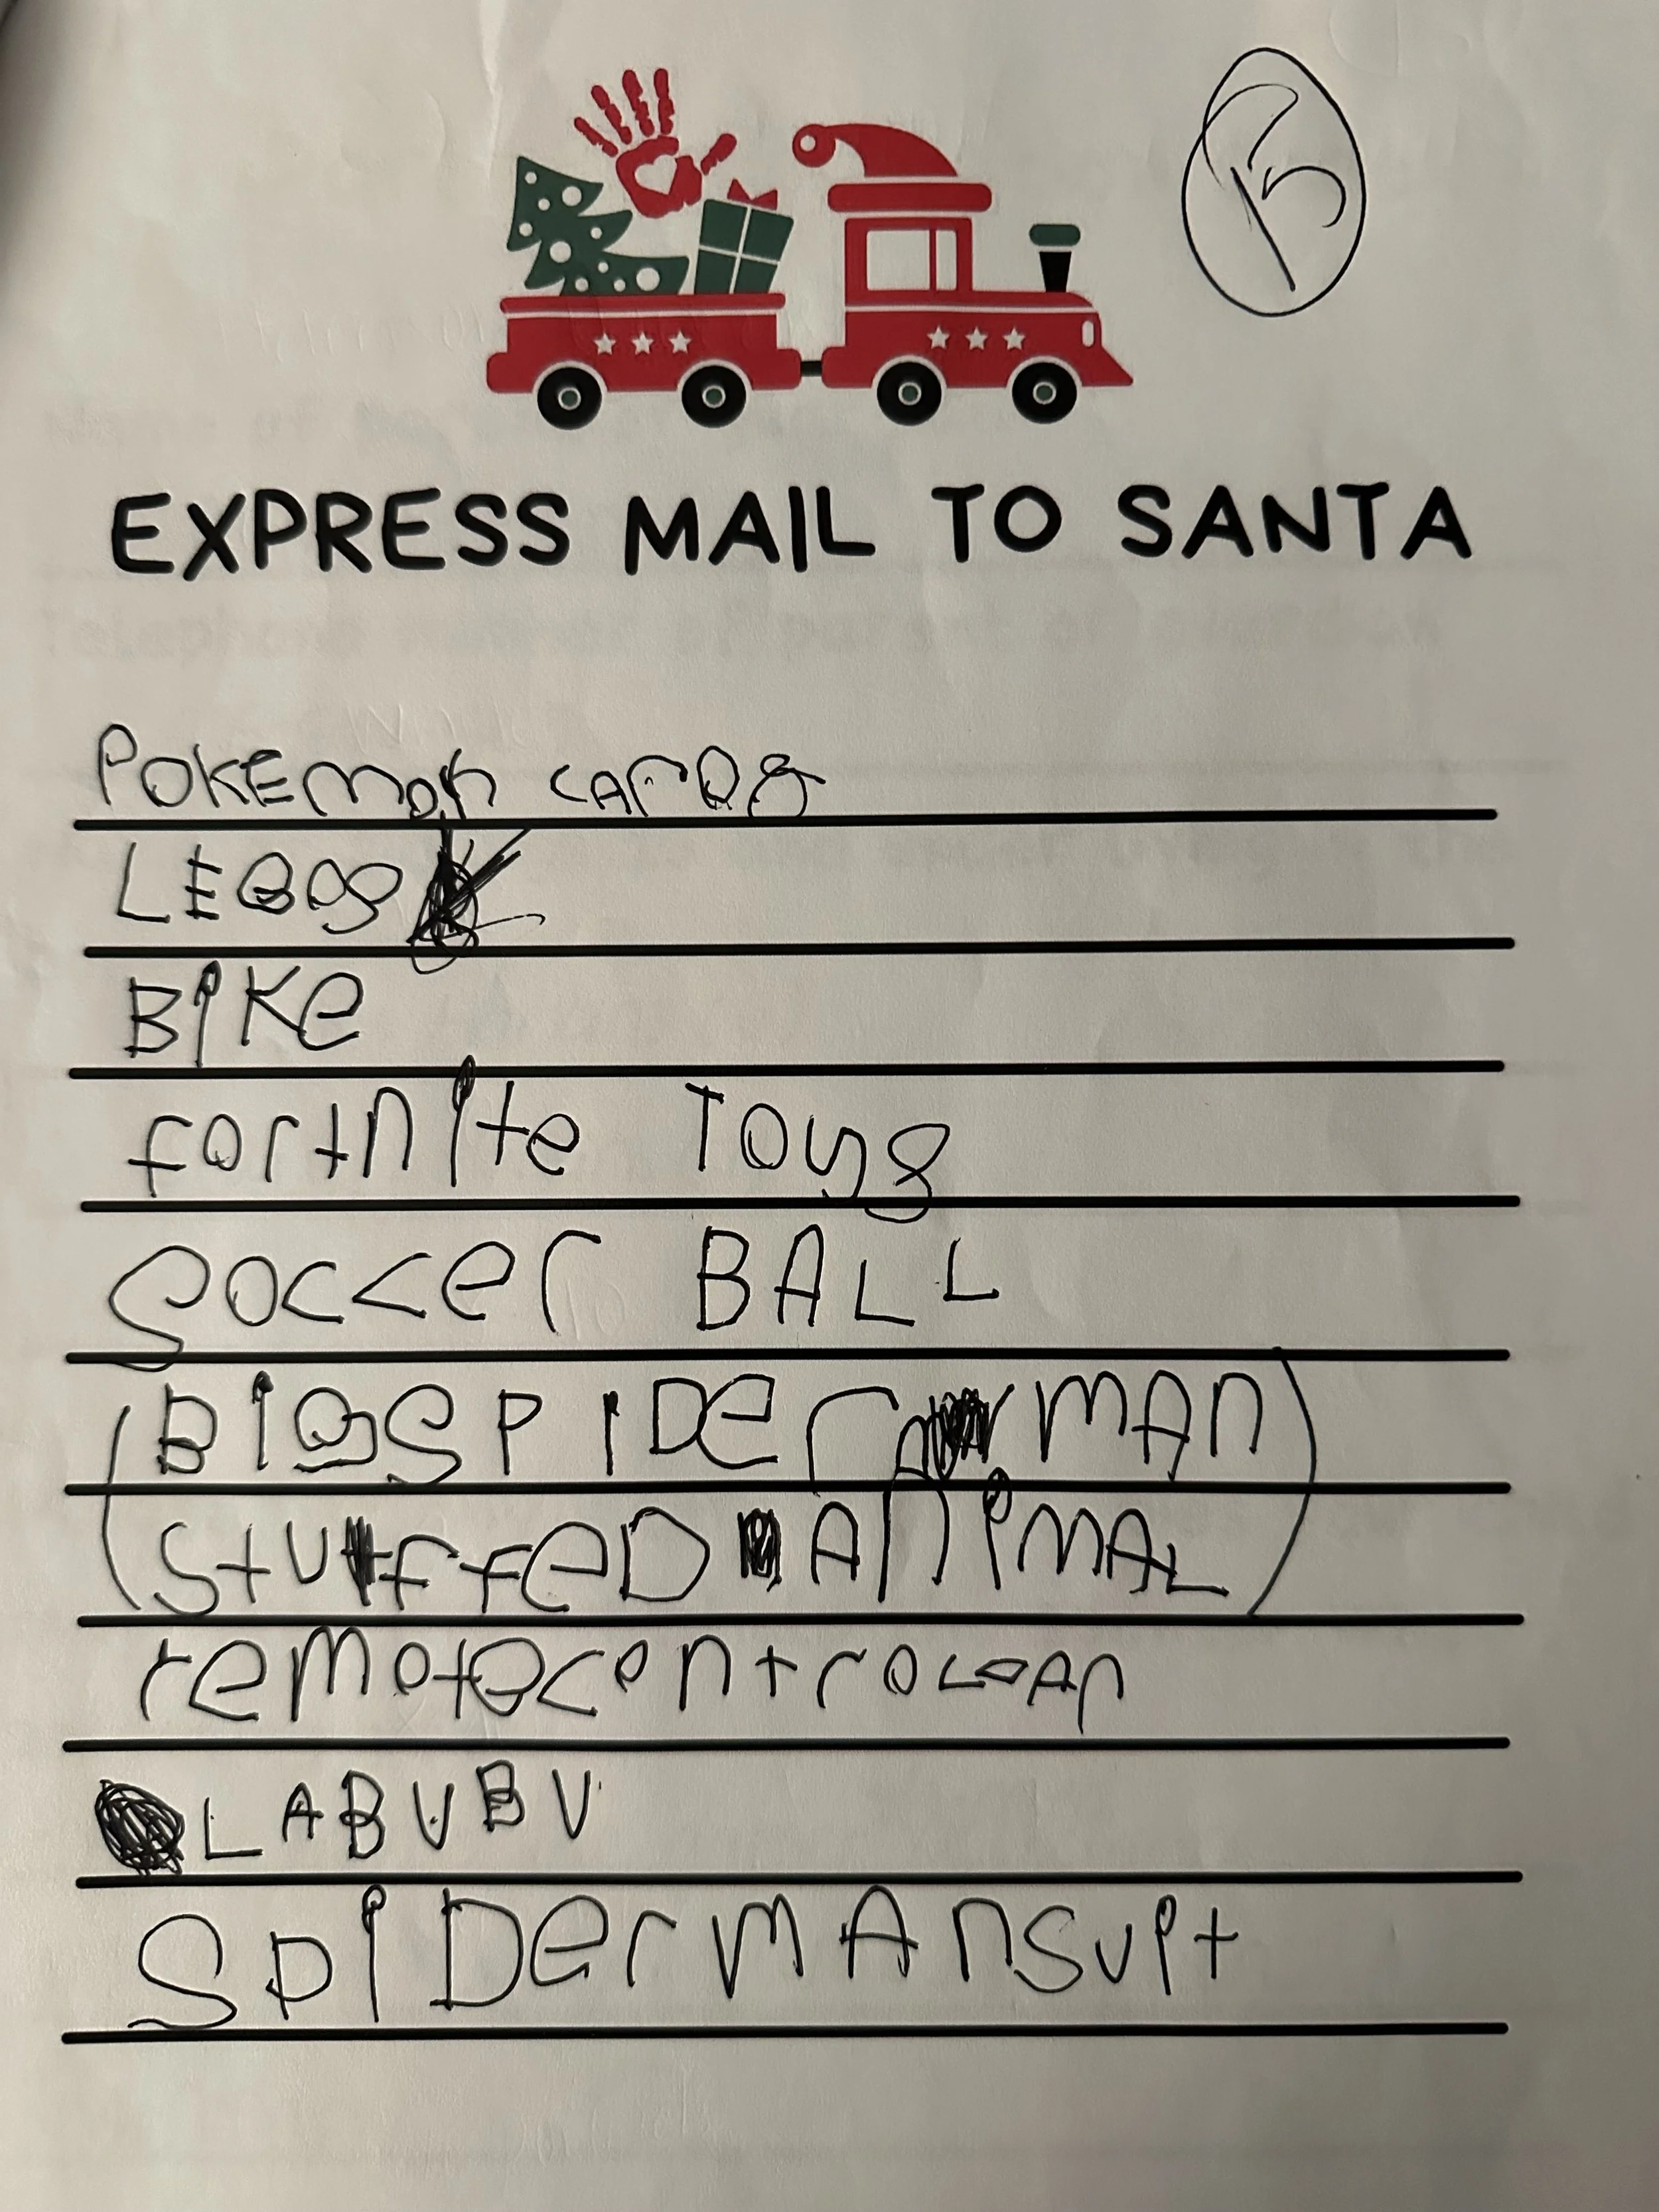 EXPRESS MAIL TO SANTA
POKEmon cArDs
LEGOs
BiKe
fortnite Toys
soccer BALL
(BIG SPIDer mAn)
(stuffeD AnimAL)
remotecontroLcAr
LABUBU
SpiDermAnsuit